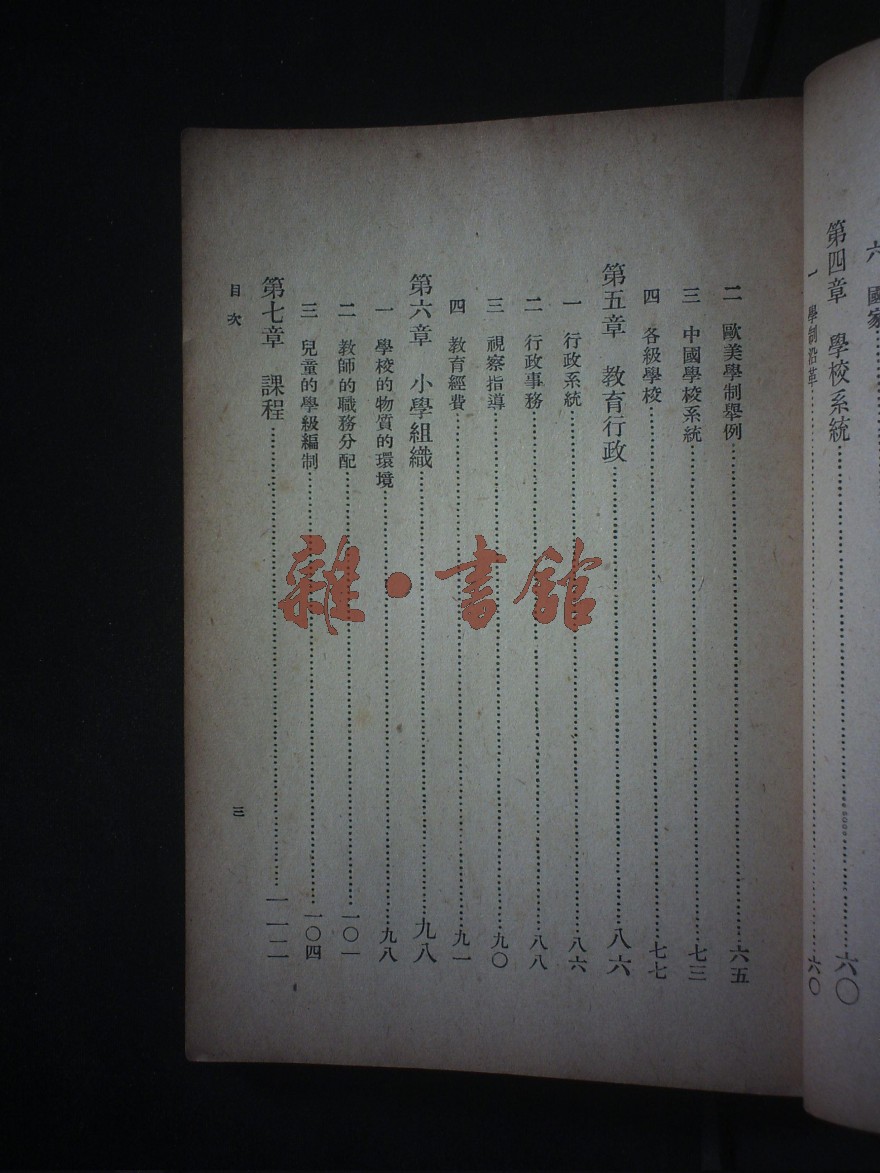 六　國家
第四章　學校系統 六〇
一　學制沿革 六〇
二　歐美學制舉例 六五
三　中國學校系統 七三
四　各級學校 七七
第五章　教育行政 八六
一　行政系統 八六
二　行政事務 八八
三　視察指導 九〇
四　教育經費 九一
第六章　小學組織 九八
一　學校的物質的環境 九八
二　教師的職務分配 一〇一
三　兒童的學級編制 一〇四
第七章　課程 一一二
目次
三
雜·書館